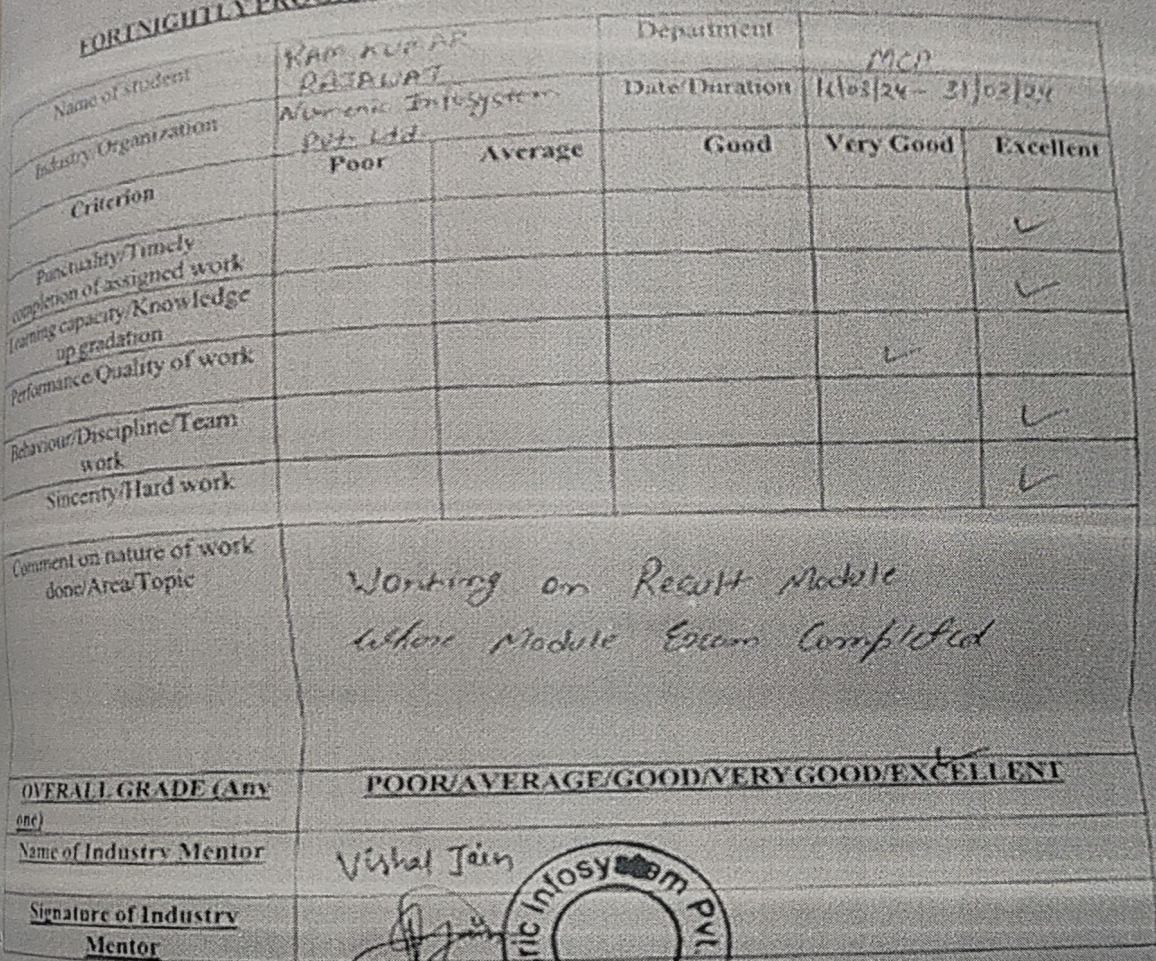 FORTNIGHTLY PRO
Name of student
RAM KUMAR
RAJAWAT
Department
MCA
Industry/Organization
Numeric Infosystem
Pvt. Ltd.
Date/Duration
16/03/24 - 31/03/24
Criterion
Poor Average Good Very Good Excellent
Punctuality/Timely
completion of assigned work
Learning capacity/Knowledge
up gradation
Performance/Quality of work
Behaviour/Discipline/Team
work
Sincerity/Hard work
Comment on nature of work
done/Area/Topic
Working on Result Module
Whore Module Exam Completed
OVERALL GRADE (Any
one)
POOR/AVERAGE/GOOD/VERY GOOD/EXCELLENT
Name of Industry Mentor
Vishal Jain
Signature of Industry
Mentor
ric Infosystem Pvt.